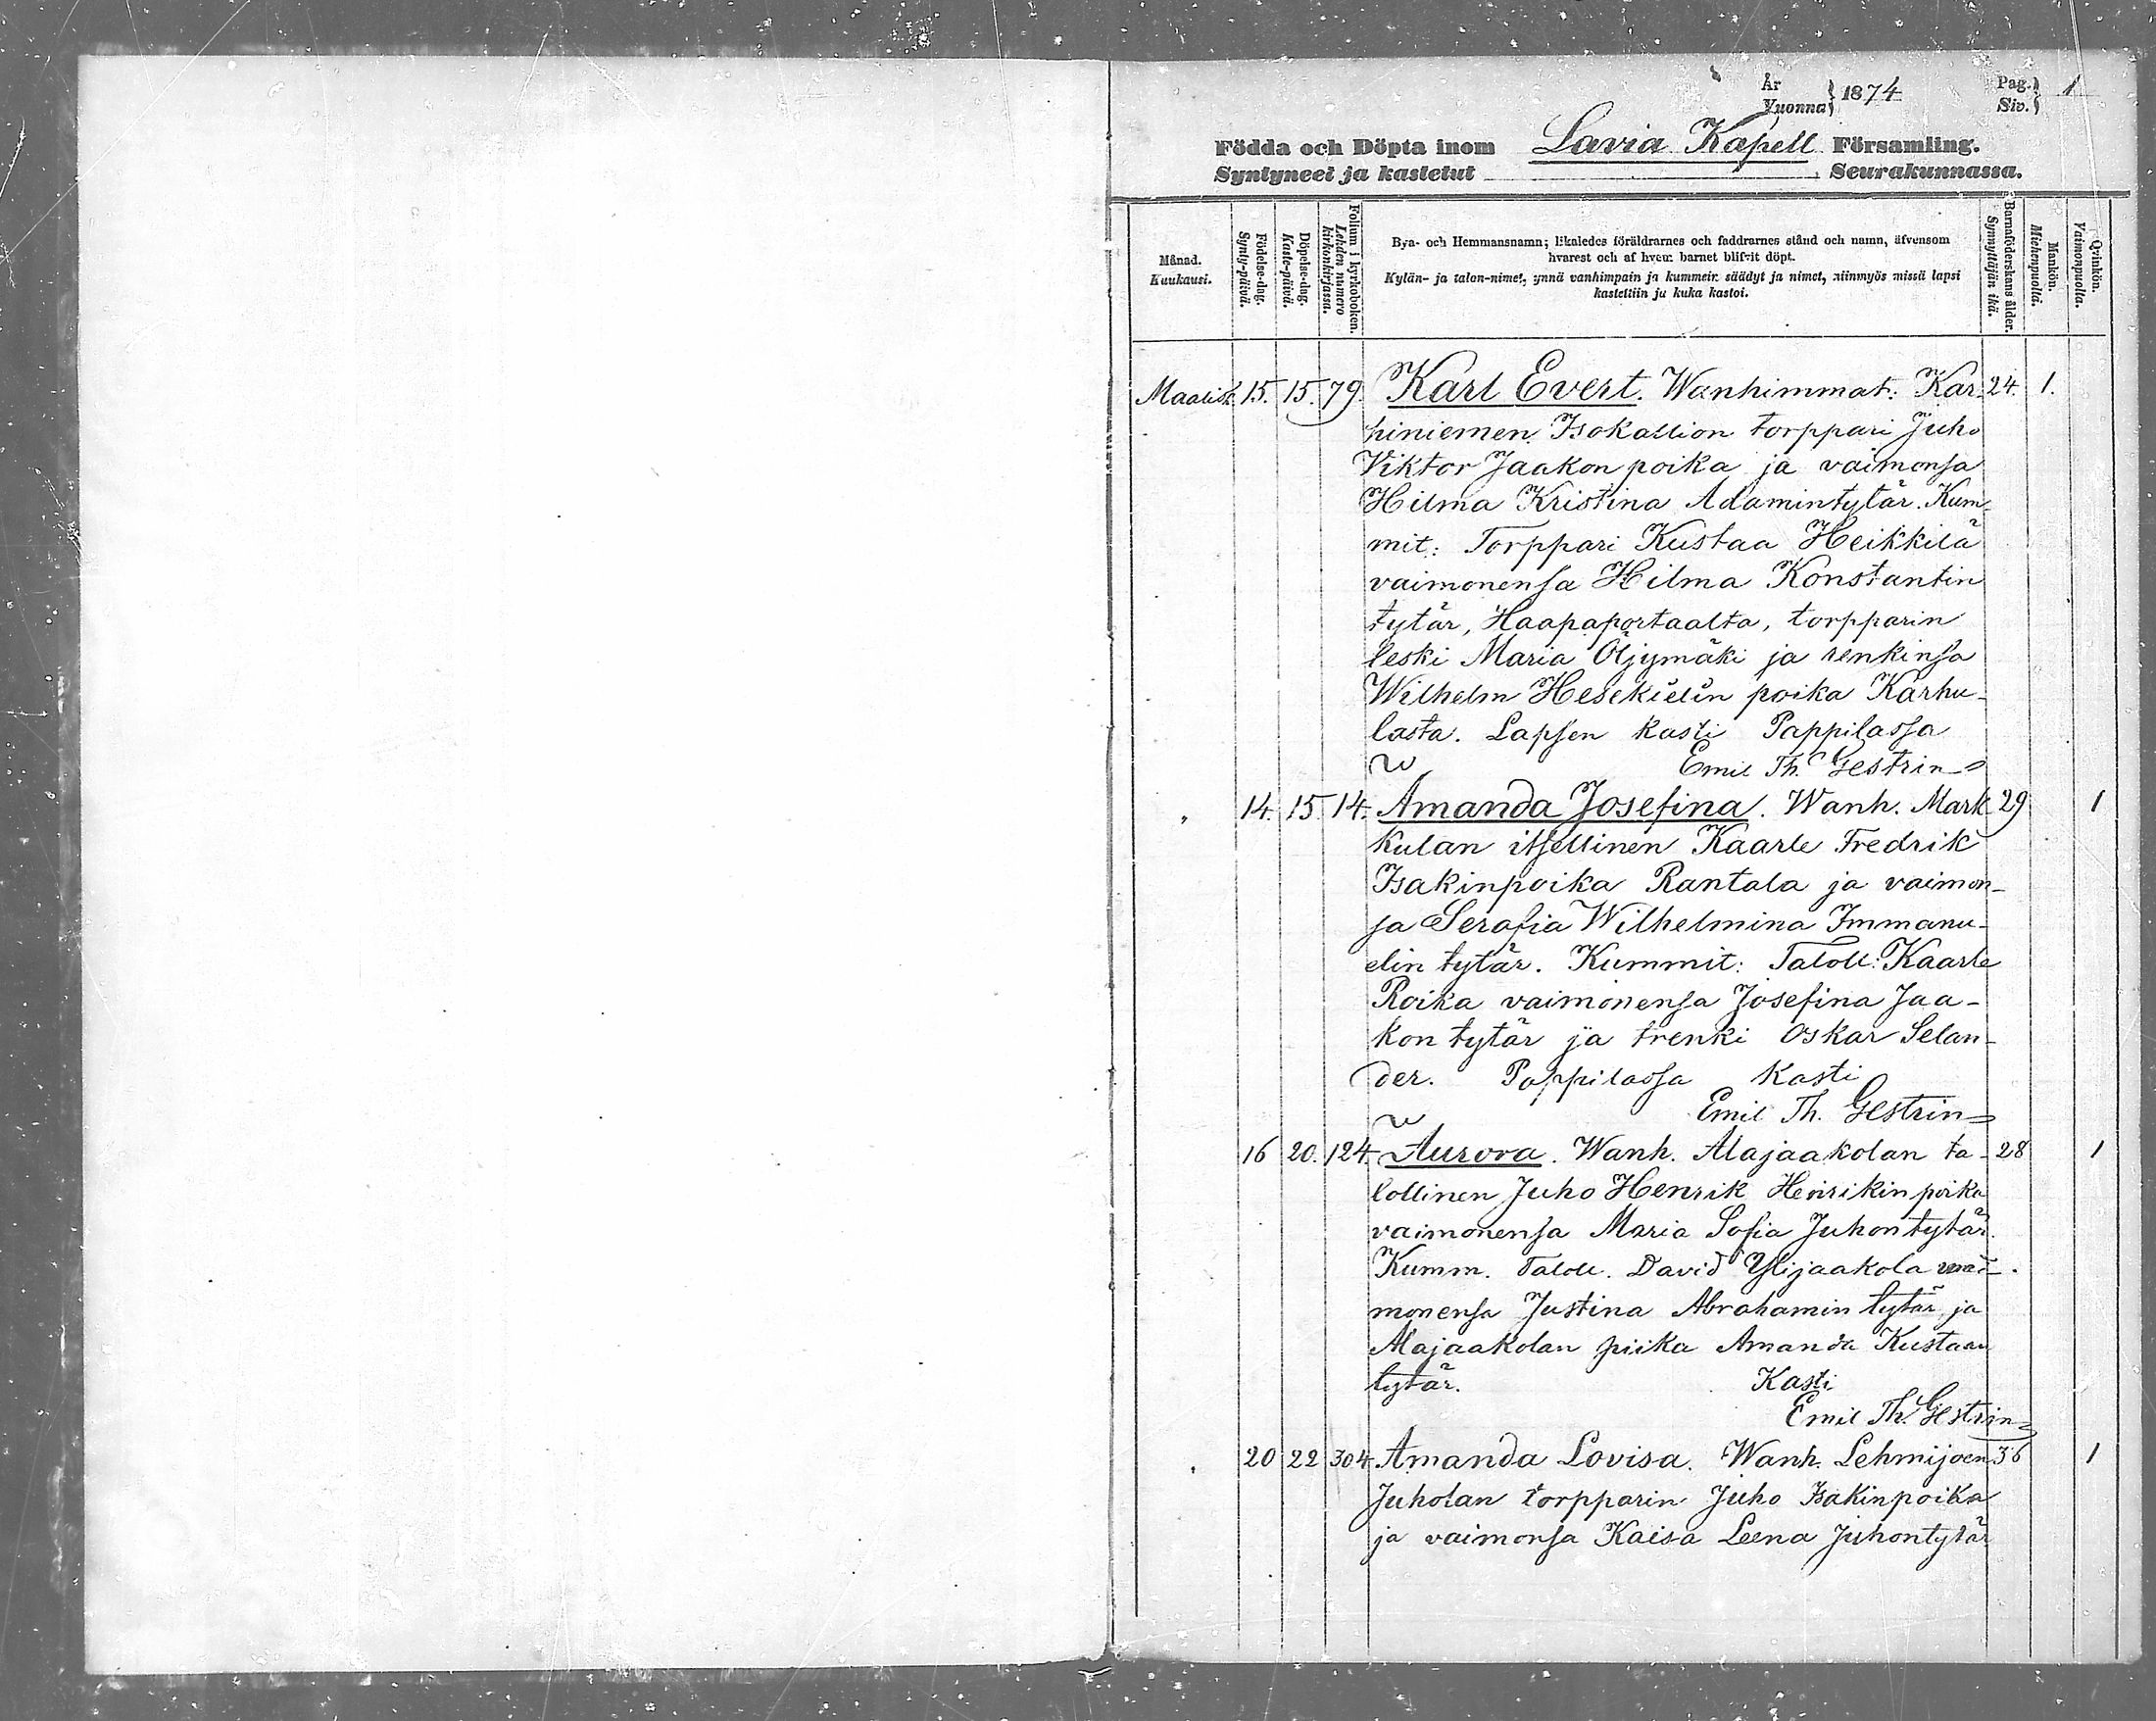 År
Vuonna} 1874
Pag.
Siv.} 1
Födda och Döpta inom Lavia Kapell Församling.
Syntyneet ja kastetut Seurakunnassa.
Månad.
Kuukausi.
Födelse-dag.
Synty-päivä.
Döpelse-dag.
Kaste-päivä.
Folium i kyrkoboken.
Lehden numero
kirkonkirjassa.
Bya- och Hemmansnamn; likaledes föräldrarnes och faddrarnes stånd och namn, äfvensom
hvarest och af hvem barnet blifvit döpt.
Kylän- ja talon-nimet, ynnä vanhimpain ja kummein säädyt ja nimet, niinmyös missä lapsi
kastettiin ja kuka kastoi.
Barnaföderskans ålder.
Synnyttäjän ikä.
Mankön.
Miehenpuolia.
Qvinkön.
Vaimonpuolia.
Maalisk. 15. 15. 79. Karl Evert. Wanhimmat: Kar- 24. 1.
hiniemen Isokallion torppari Juho
Viktor Jaakon poika ja vaimonsa
Hilma Kristina Adamintytär. Kum-
mit: Torppari Kustaa Heikkilä
vaimonensa Hilma Konstantin
tytär, Haapaportaalta, torpparin
leski Maria Öljymäki ja renkinsä
Wilhelm Hesekielin poika Karhu-
lasta. Lapsen kasti Pappilassa
Emil Th. Gestrin
" 14. 15. 14. Amanda Josefina. Wanh. Mark 29 1
kulan itsellinen Kaarle Fredrik
Isakinpoika Rantala ja vaimon-
sa Serafia Wilhelmina Immanu-
elin tytär. Kummit: Taloll: Kaarle
Roika vaimonensa Josefina Jaa-
kon tytär ja trenki Oskar Selan-
der. Pappilassa Kasti
Emil Th. Gestrin
16 20. 124. Aurora. Wanh. Alajaakolan ta- 28 1
lollinen Juho Henrik Henrikin poika
vaimonensa Maria Sofia Juhontytär.
Kumm. Taloll. David Ylijaakola vai-
monensa Justina Abrahamin tytär ja
Alajaakolan piika Amanda Kustaan
tytär. Kasti
Emil Th. Gestrin
" 20 22 304 Amanda Lovisa. Wanh. Lehmijoen 36 1
Juholan torpparin Juho Isakinpoika
ja vaimonsa Kaisa Leena Juhontytär